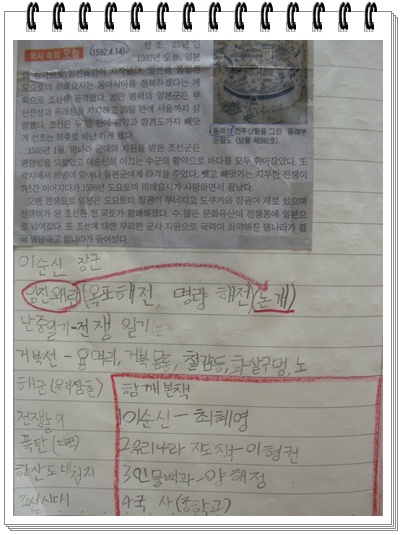 역사 속의 오늘 (1592.4.14)
선조 25년인
1592년 오늘, 일본
모요토미 히데요시는 동아시아를 정복하겠다는 계
획으로 조선을 공격했다. 20만 병력의 일본군은 부
산진성과 동래성을 차지하고 20일 만에 서울까지 점
령했다. 조선은 두 달 만에 평양과 함경도까지 빼앗
겨 선조는 의주로 비난 가게 됐다.
1593년 1월, 명나라 군대의 지원을 받은 조선군은
평양성을 되찾았고 이순신이 이끄는 수군의 활약으로 바다를 모두 휘어잡았다. 또
각지에서 의병이 일어나 일본군에게 타격을 주었다. 뺏고 빼앗기는 지루한 전쟁이
7년간 이어지다가 1598년 도요토미 히데요시가 사망하면서 끝났다.
오랜 전쟁으로 일본은 도요토미 정권이 무너지고 도쿠가와 정권이 새로 섰으며
전쟁터가 된 조선은 전 국토가 황폐해졌다. 수 많은 문화유산이 전쟁통에 일본으
로 넘어갔다. 또 조선에 대한 무리한 군사 지원으로 국력이 쇠약해진 명나라가 결
국 멸망하고 청나라가 들어섰다.
동래성 전투상황을 그린 '동래부
순절도' (보물 제392호).
이순신 장군
임진왜란 (옥포해전, 명량 해전) (논개)
난중일기-전쟁 일기
거북선 - 용머리, 거북 몸통, 철갑등, 화살구멍, 노
해군 (우리삼촌)
전쟁놀이
폭탄
한산도대첩지
조선시대
함께 본 책
1 이순신 - 최혜영
2 우리나라 지도책 - 이형권
3 인물백과 - 양해정
4 국사 (중학교)